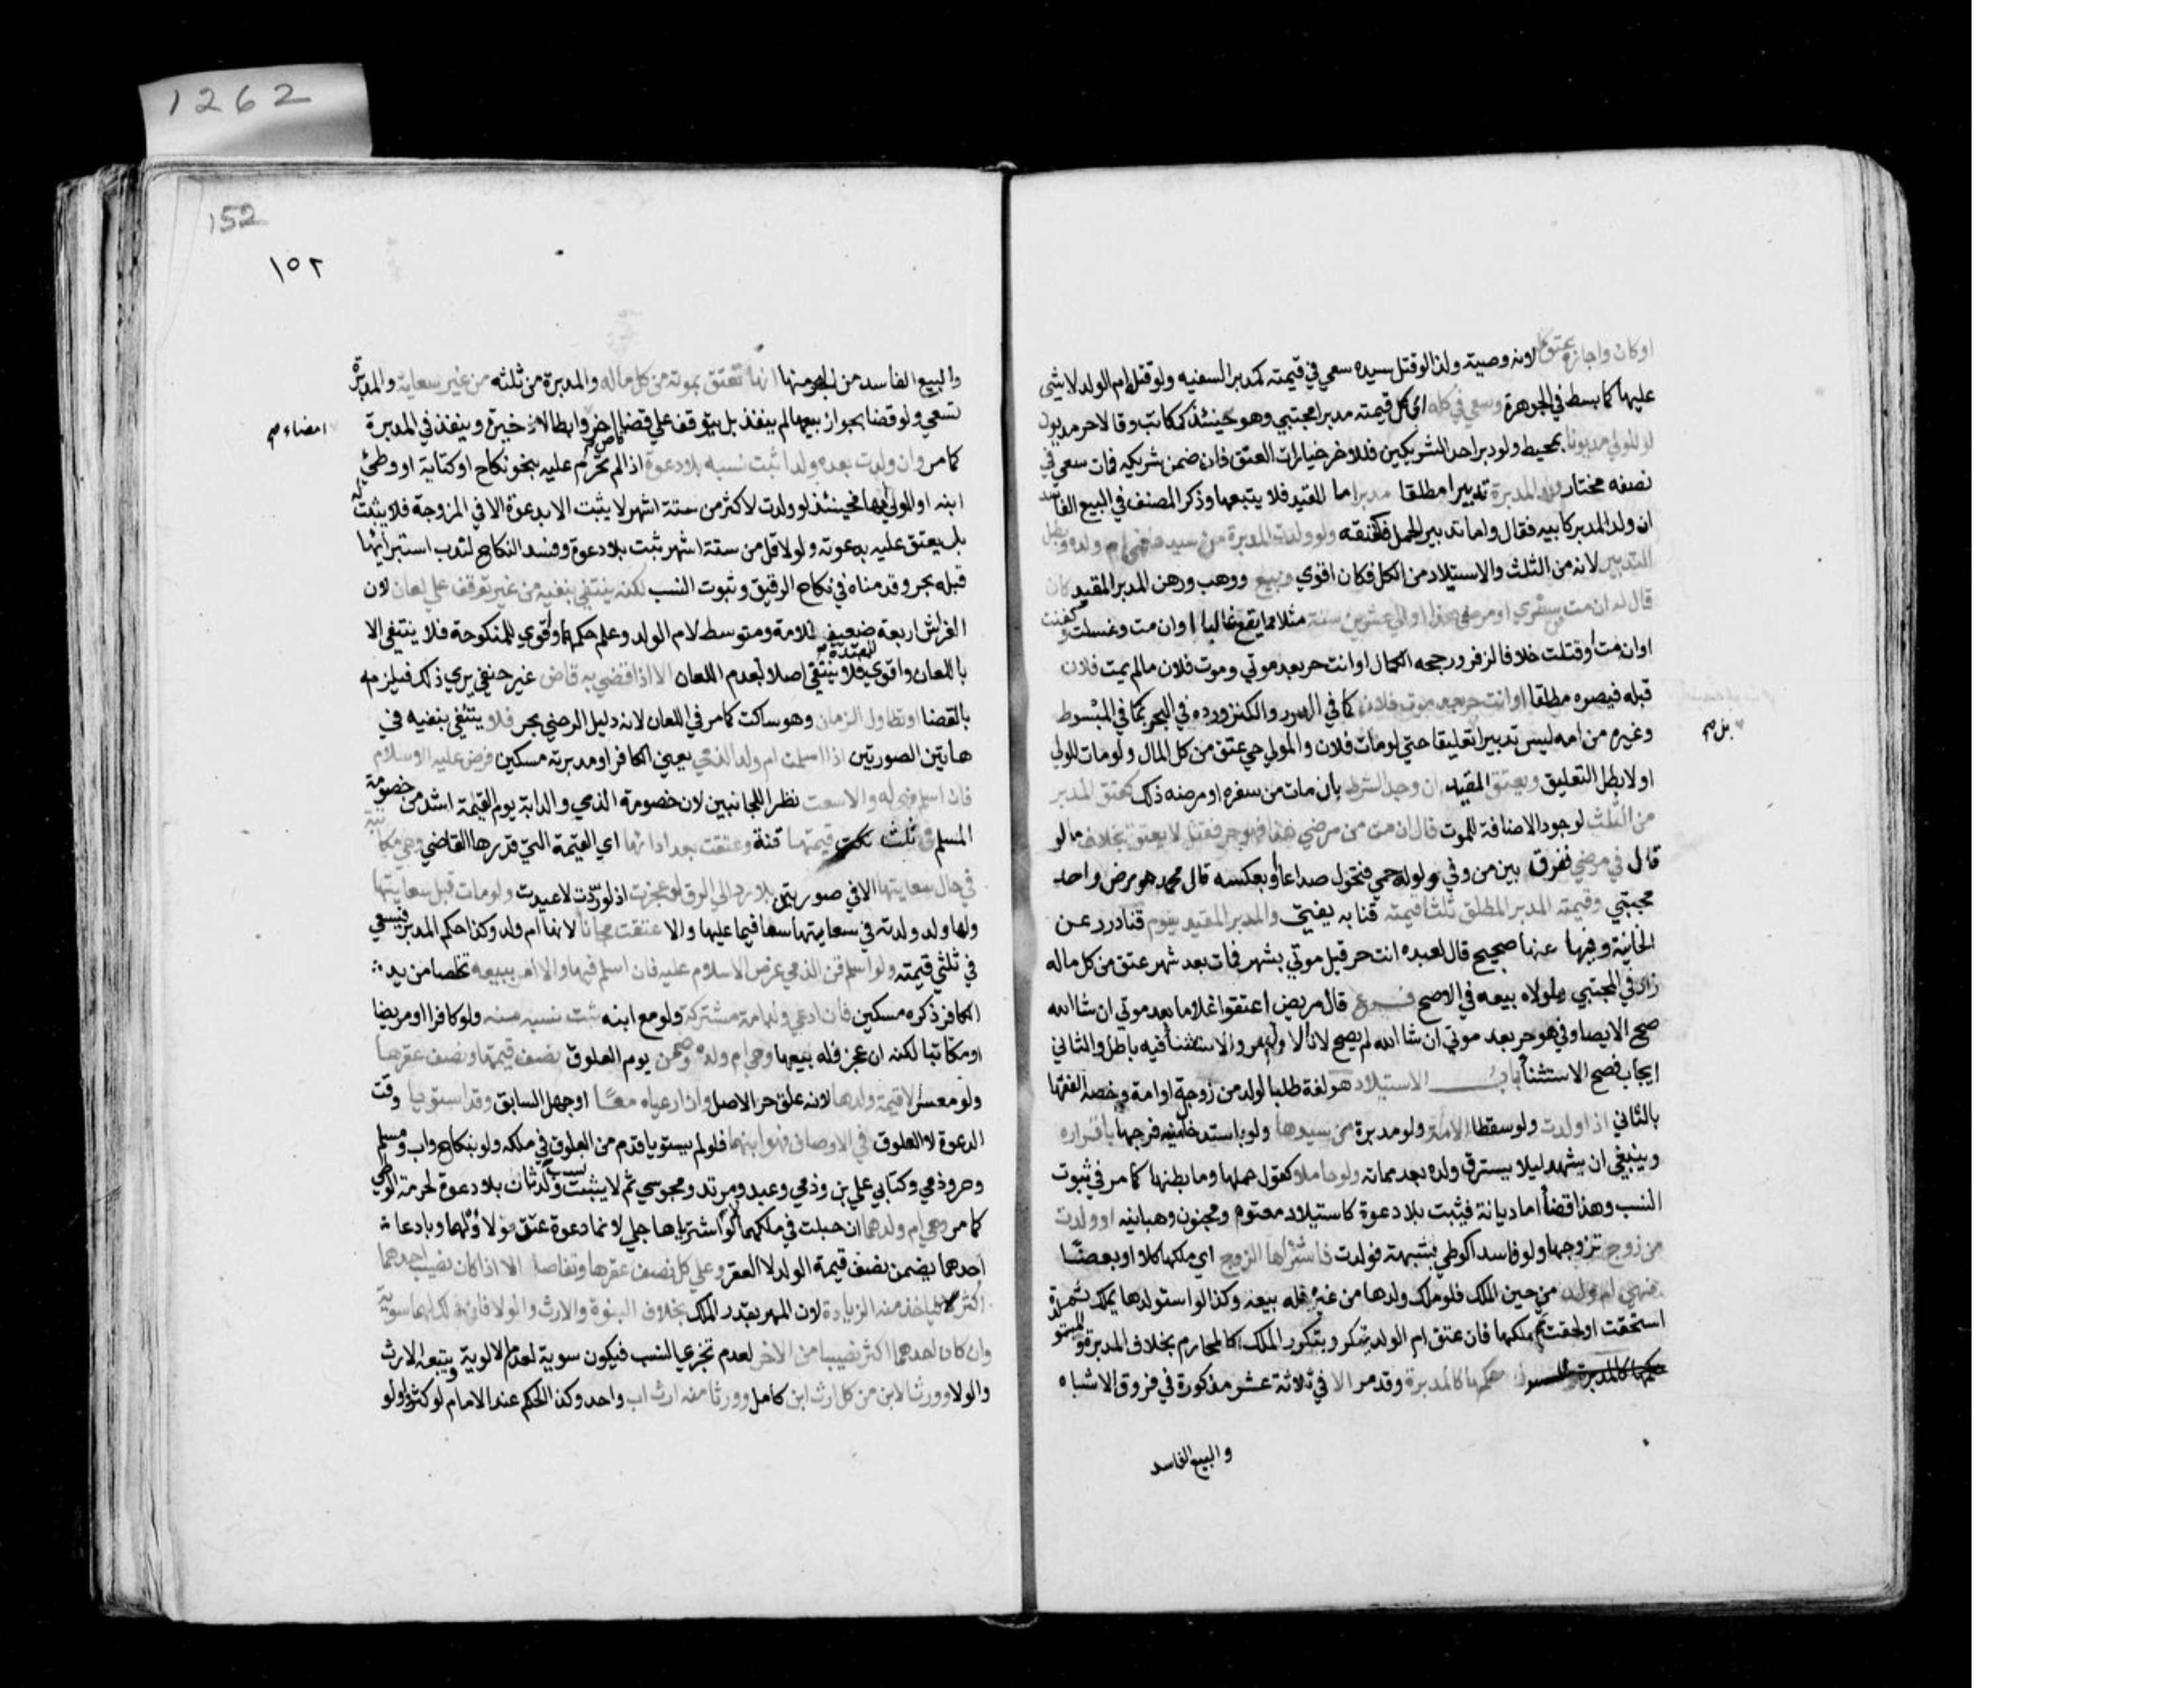 اوكان واجازه عتق كله لانه وصية ولذا لو قتل سيده سعي في قيمته كمدبر السفيه ولو قتل ام الولد لا شي
عليها كما بسط في الجوهرة وسعي في كله اي كل قيمته مدبرا مجتبي وهو حينئذ كمكاتب وقالا حر مديون
لو المولي مديونا بمحيط ولو دبر احد الشريكين فللاخر خيارات العتق فان ضمن شريكه فمات سعي في
نصفه مختار وولد المدبرة تدبيرا مطلقا مدبر اما المقيد فلا يتبعها وذكر المصنف في البيع الفاسد
ان ولد المدبر كابيه فقال واما تدبير الحمل فكعتقه ولو ولدت المدبرة من سيدها فهي ام ولده وبطل
التدبير لانه من الثلث والاستيلاد من الكل فكان اقوي وبيع ووهب ورهن المدبر المقيد كان
قال له ان مت من سفري او مرضي هذا او الي عشرين سنة مثلا مما يقع غالبا اوان مت وغسلت وكفنت
اوان مت او قتلت خلافا لزفر ورجحه الكمال او انت حر بعد موتي وموت فلان مالم يمت فلان
قبله فيصير مطلقا او انت حر بعد موت فلان كما في الدرر والكنز ورده في البحر بما في المبسوط
بل صح
وغيره من انه ليس تدبيرا تعليقا حتي لو مات فلان والمولي حي عتق من كل المال ولو مات المولي
اولا بطل التعليق ويعتق المقيد ان وجد الشرط بان مات من سفره او مرضه ذلك كعتق المدبر
من الثلث لوجود الاضافة للموت قال ان مت من مرضي هذا فهو حر فقتل لا يعتق بخلاف ما لو
قال في مرضي ففرق بين من وفي ولو له حمي فتحول صداعا او بعكسه قال محمد هو مرض واحد
مجتبي وقيمته المدبر المطلق ثلثا قيمته قنا به يفتي والمدبر المقيد يقوم قنا درر عن
الخانية وفيها عنها صحيح قال لعبده انت حر قبل موتي بشهر فمات بعد شهر عتق من كل ماله
زاد في المجتبي ولمولاه بيعه في الاصح فرع قال مريض اعتقوا غلاما بعد موتي ان شا الله
صح الايصا وفي هو حر بعد موتي ان شا الله لم يصح لان الاول امر والاستثنا فيه باطل والثاني
ايجاب فصح الاستثنا باب الاستيلاد هو لغة طلب الولد من زوجة او امة وخصه الفقها
بالثاني اذا ولدت ولو سقطا الامة ولو مدبرة من سيدها ولو باستدخال منيه فرجها باقراره
وينبغي ان يشهد ليلا يسترق ولده بعد مماته ولو حاملا كقول حملها وما بطنها كما مر في ثبوت
النسب وهذا قضا اما ديانة فيثبت بلا دعوة كاستيلاد معتوه ومجنون وهبانيه او ولدت
من زوج تزوجها ولو فاسدا كوطي بشبهة فولدت فاشتراها الزوج اي ملكها كلا او بعضا
فهي ام ولد من حين الملك فلو ملك ولدها من غيره فله بيعه وكذا لو استولدها بملك ثم
استحقت او لحقت ثم ملكها فان عتق ام الولد يتكرر بتكرر الملك كالمحارم بخلاف المدبرة والمستولد
حكمها كالمدبرة وقد مر الا في ثلاثة عشر مذكورة في فروق الاشباه
والبيع الفاسد
1262
152
١٥٢
والبيع الفاسد من البحر منها انها تعتق بموته من كل ماله والمدبرة من ثلثه من غير سعاية والمدبرة
تسعي ولو قضا بجواز بيعها لم ينفذ بل يتوقف علي قضا قاض اخر وابطالا ذخيرة وينفذ في المدبرة
امضاء صح
كما مر وان ولدت بعده ولدا ثبت نسبه بلا دعوة اذا لم تحرم عليه بنحو نكاح او كتابة او وطئ
ابنه او المولي امها فحينئذ لو ولدت لاكثر من ستة اشهر لا يثبت الا بدعوة الا في المزوجة فلا يثبت
بل يعتق عليه بدعوته ولو لاقل من ستة اشهر ثبت بلا دعوة وفسد النكاح لندب استبرائها
قبله بحر وقدمناه في نكاح الرقيق وثبوت النسب لكنه ينتفي بنفيه من غير توقف علي لعان لان
الفراش اربعة ضعيف للامة ومتوسط لام الولد وعلم حكمهما وقوي للمنكوحة فلا ينتفي الا
باللعان واقوي للمعتدة فلا ينتفي اصلا لعدم اللعان الا اذا قضي به قاض غير حنفي يري ذلك فيلزمه
بالقضا او تطاول الزمان وهو ساكت كما مر في اللعان لانه دليل الرضي بحر فلا ينتفي بنفيه في
هاتين الصورتين اذا اسلمت ام ولد الذمي يعني الكافر او مدبرته مسكين عرض عليه الاسلام
فان اسلم فهي له والا سعت نظرا للجانبين لان خصومة الذمي والدابة يوم القيمة اشد من خصومة
المسلم في ثلث قيمتها قنة وعتقت بعد ادائها اي القيمة التي قدرها القاضي وهي مكاتبة
في حال سعايتها الا في صورتين بلا رد الي الرق لو عجزت اذ لو ردت لاعيدت ولو مات قبل سعايتها
ولها ولد ولدته في سعايتها سعا فيما عليها والا عتقت مجانا لانها ام ولد وكذا حكم المدبر فيسعي
في ثلثي قيمته ولو اسلم قن الذمي عرض الاسلام عليه فان اسلم فبها والا امر ببيعه تخلصا من يد
الكافر ذكره مسكين فان ادعي ولد امة مشتركة ولو مع ابنه ثبت نسبه منه ولو كافرا او مريضا
او مكاتبا لكنه ان عجز فله بيعها وهي ام ولده وضمن يوم العلوق نصف قيمتها ونصف عقرها
ولو معسرا لا قيمة ولدها لانه علق حر الاصل وان ادعياه معا او جهل السابق وقد استويا وقت
الدعوة لا العلوق في الاوصاف فهو ابنهما فلو لم يستويا قدم من العلوق في ملكه ولو بنكاح واب ومسلم
وحر وذمي وكتابي علي ابن وذمي وعبد ومرتد ومجوسي ثم لا يثبت نسب ولد ثان بلا دعوة لحرمة الوطي
كما مر وهي ام ولدهما ان حبلت في ملكهما لا لو اشترياها حبلي لانها دعوة عتق فولاؤه لهما وبادعاء
احدهما يضمن نصف قيمة الولد لا العقر وعلي كل نصف عقرها وتقاصا الا اذا كان نصيب احدهما
اكثر فياخذ منه الزيادة لان المهر بقدر الملك بخلاف البنوة والارث والولا فان ذلك لهما سوية
وان كان احدهما اكثر نصيبا من الاخر لعدم تجزي النسب فيكون سوية لعدم الاولوية ويتبعه الارث
والولا وورث الابن من كل ارث ابن كامل وورثا منه ارث اب واحد وكذا الحكم عند الامام لو كثروا ولو